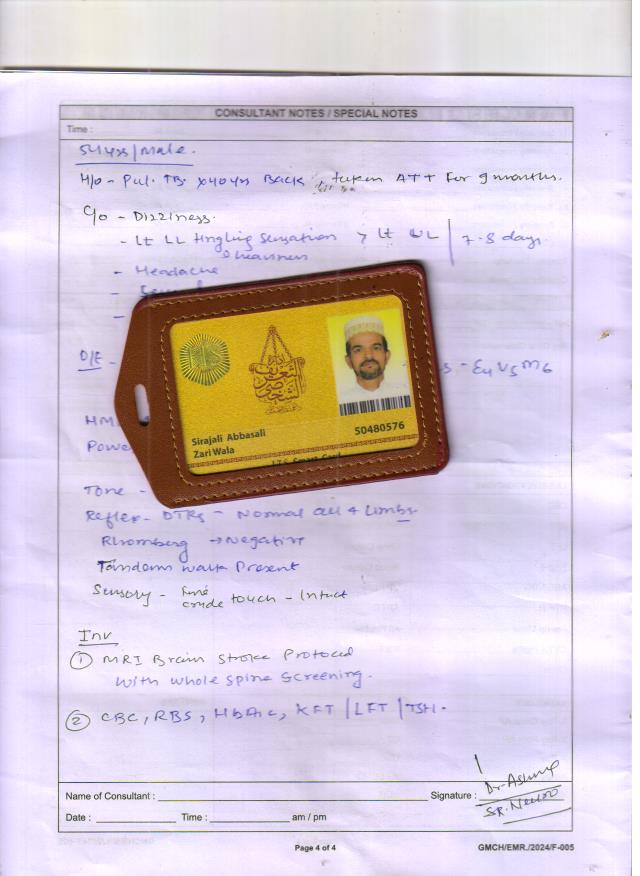 CONSULTANT NOTES / SPECIAL NOTES
Time :
54 yrs/Male.
H/o - Pul. TB x40yrs Back, taken ATT for 9 months.
C/o - Dizziness.
- Lt LL tingling sensation > Lt UL | 7-8 days
heaviness
- Headache
-
-
O/E - S - E4 V5 M6
HM
Powe
Tone -
Reflex - DTRs - Normal all 4 limbs
Rhomberg → Negative
Tandem walk Present
Sensory - Fine
crude touch - Intact
Inv
① MRI Brain Stroke Protocol
with whole spine screening.
② CBC, RBS, HbA1c, KFT | LFT | TSH.
Name of Consultant : Signature :
Dr. Ashwp
SR. Neuro
Date : Time : am / pm
Page 4 of 4 GMCH/EMR./2024/F-005
ادارة
التعريف
الشخصي
ITS
Sirajali Abbasali
Zari Wala
50480576
I.T.S. Smart Card